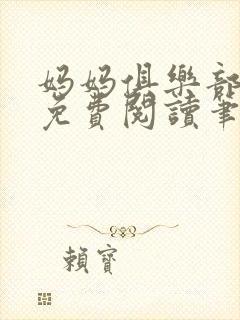 媽媽俱樂部
免費閱讀筆
賴寶